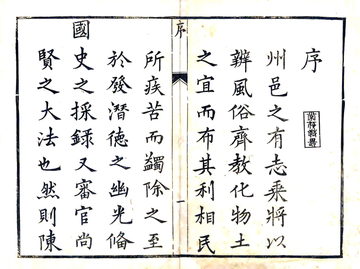 序
州邑之有志乘將以
辨風俗齊教化物土
之宜而布其利相民
序
一
所疾苦而蠲除之至
於發潛德之幽光備
國史之採録又審官尚
賢之大法也然則陳